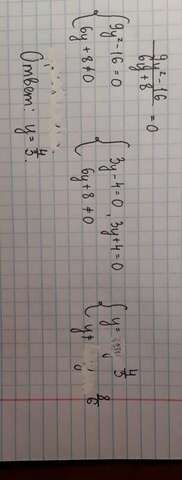 (9y²-16)/(6y+8) = 0
{ 9y²-16=0
6y+8≠0
{ 3y-4=0, 3y+4=0
6y+8≠0
{ y= 4/3
y≠ 8/6
Ответ: y=4/3.